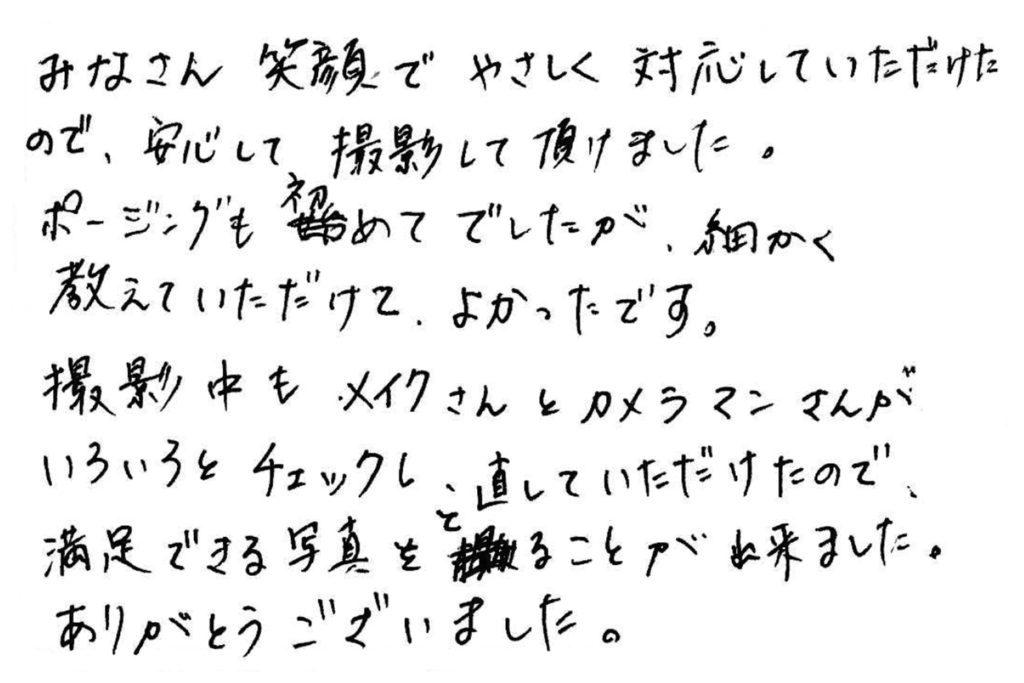 みなさん 笑顔で やさしく 対応していただけた
ので、安心して 撮影して頂けました。
ポージングも 初めてでしたが、細かく
教えていただけて、よかったです。
撮影中も メイクさんとカメラマンさんが
いろいろとチェックし、直していただけたので、
満足できる写真をとることが出来ました。
ありがとうございました。